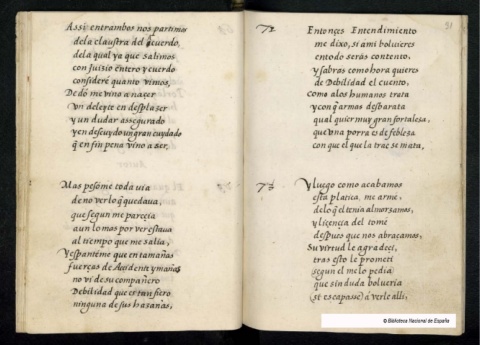 Assi entrambos nos partimos
dela claustra del Acuerdo,
dela qual ya que salimos
con Juisio entero y cuerdo
consideré quanto vimos,
De dō me vino a naçer
vn deleyte en desplaser
y un dudar assegurado
y en descuydo un gran cuydado
q̄ en fin pena vino a ser.
Mas pesome toda via
de no ver lo q̄ quedava,
que segun me parecia
aun lo mas por ver estava
al tiempo que me salia,
Y espanteme que en tamañas
fuerças de Accidente y mañas
no vi de su compañero
Debilidad que es tan fiero
ninguna de sus hasañas,
91
72
Entonçes Entendimiento
me dixo, si ami bolvieres
en todo serás contento,
y sabras como hora quieres
de Debilidad el cuento,
como alos humanos trata
y con q̄ armas desbarata
qual quier muy gran fortalesa,
que una porra es de feblesa
con que el que la trae se mata,
73
Y luego como acabamos
esta platica, me arme,
delo q̄ el tenia almorsamos,
y liçençia del tomé
despues que nos abraçamos,
Su virtud le agradeçi,
tras esto le prometi
segun el me lo pedia
que sin duda bolveria
(si escapasse) á verle alli,
© Biblioteca Nacional de España